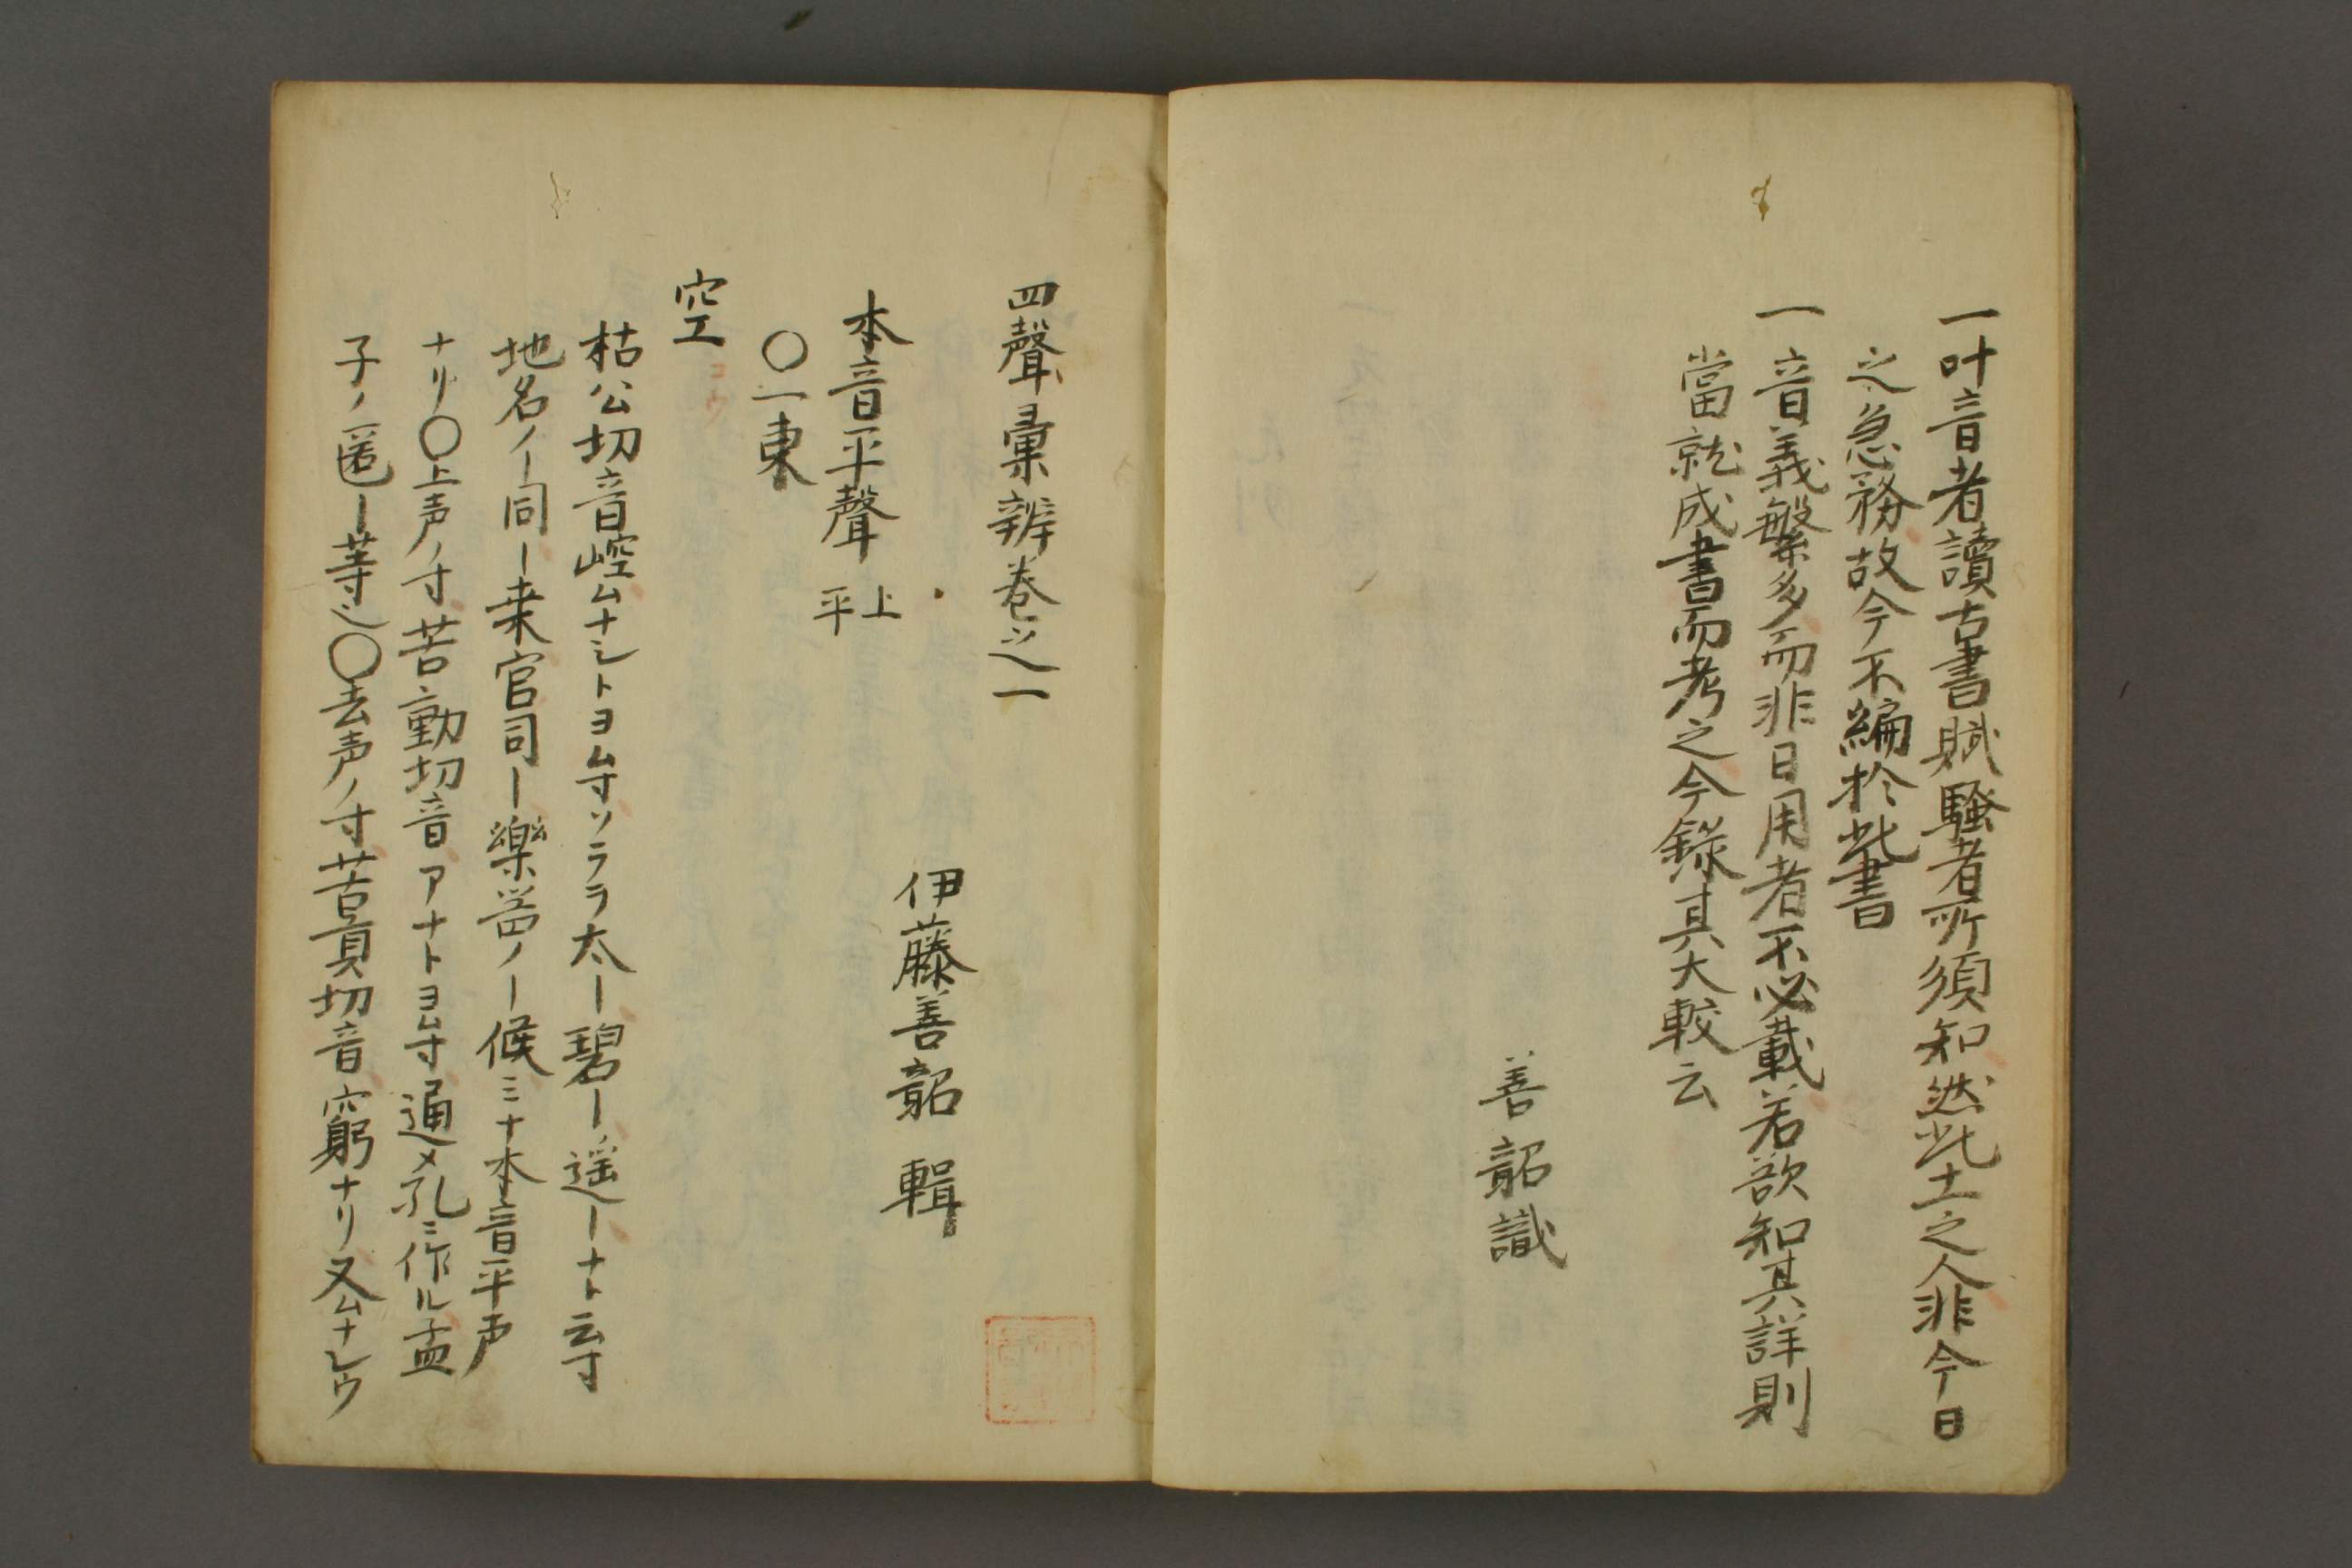 一叶音者讀古書賦騷者所須知然此土之人非今日
之急務故今不編於此書
一音義繁多而非日用者不必載若欲知其詳則
當就成書而考之今錄其大較云
善韶識
四聲彙辨巻之一
伊藤善韶輯
本音平聲 上平
〇一東
空
枯公切音崆ムナシトヨム寸ソラ太ー碧ー遥ーナト云寸
地名ノー同ー来官司ー樂器ノー候ミナ本音平声
ナリ〇上声ノ寸苦動切音アナトヨム寸通メ孔ニ作ル孟
子ノ匿ー等也〇去声ノ寸苦貢切音窮ナリ又ムナシウ